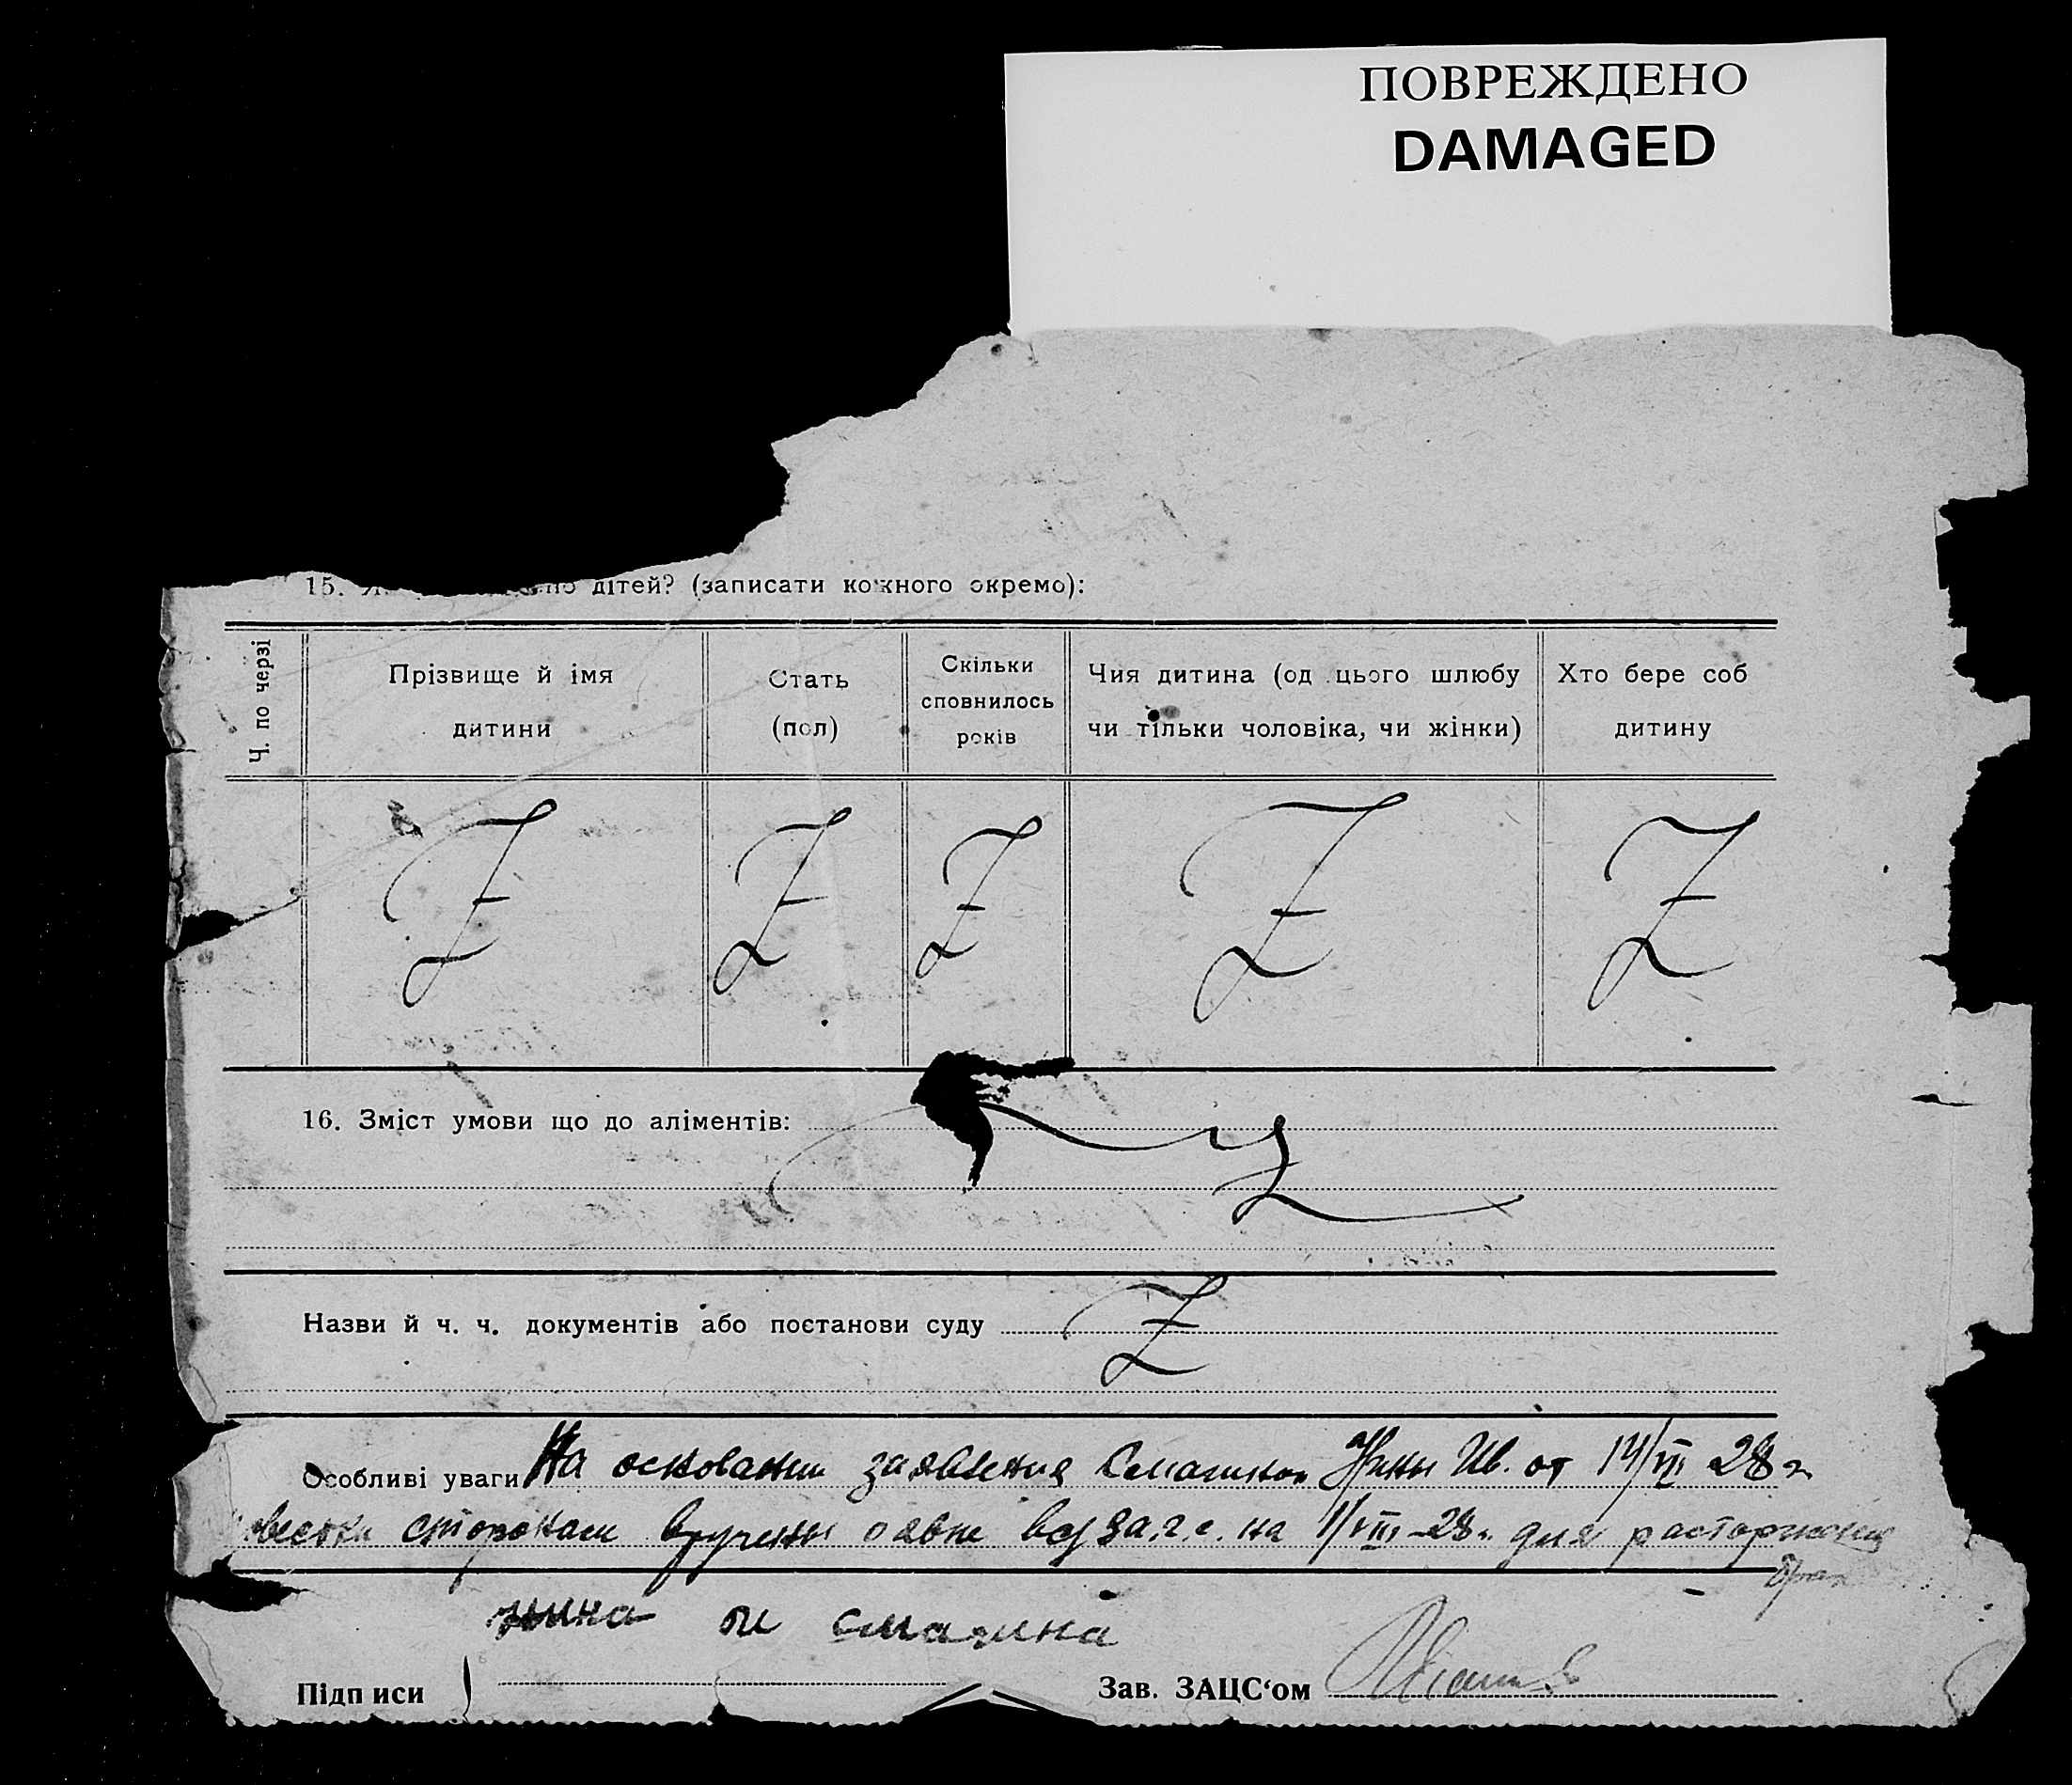 ПОВРЕЖДЕНО
DAMAGED
15. дітей? (записати кожного окремо):
Ч. по черзі
Прізвище й імя
дитини
Стать
(пол)
Скільки
сповнилось
років
Чия дитина (од цього шлюбу
чи тільки чоловіка, чи жінки)
Хто бере соб
дитину
Z Z Z Z Z
16. Зміст умови що до аліментів:
Z
Назви й ч. ч. документів або постанови суду Z
Особливі уваги На основании заявления Смагиной Нины Ив. от 14/VII 28 г.
сторонам вручены о явке в на 1/VIII-28 г. для расторжения
Нина смагина
Підписи
Зав. ЗАЦС‘ом